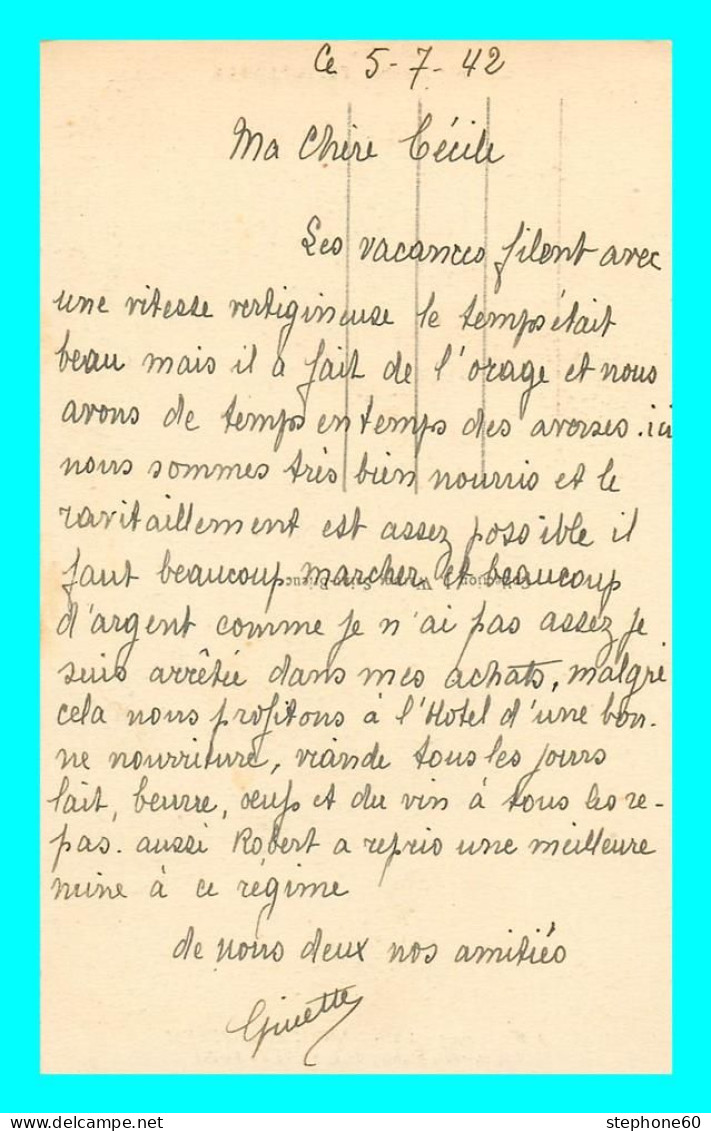 Ce 5-7-42
Ma Chère Cécile
Les vacances filent avec
une vitesse vertigineuse le temps était
beau mais il a fait de l'orage et nous
avons de temps en temps des averses. ici
nous sommes très bien nourris et le
ravitaillement est assez possible il
faut beaucoup marcher et beaucoup
d'argent comme je n'ai pas assez je
suis arrêtée dans mes achats, malgré
cela nous profitons à l'Hotel d'une bon-
ne nourriture, viande tous les jours
lait, beurre, œufs et du vin à tous les re-
pas. aussi Robert a repris une meilleure
mine à ce régime
de nous deux nos amitiés
Ginette
stephone60